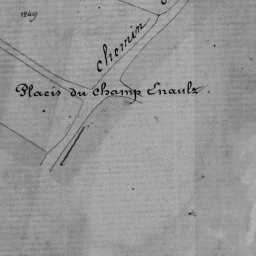 1249
chemin
Placis du Champ Enaulx.